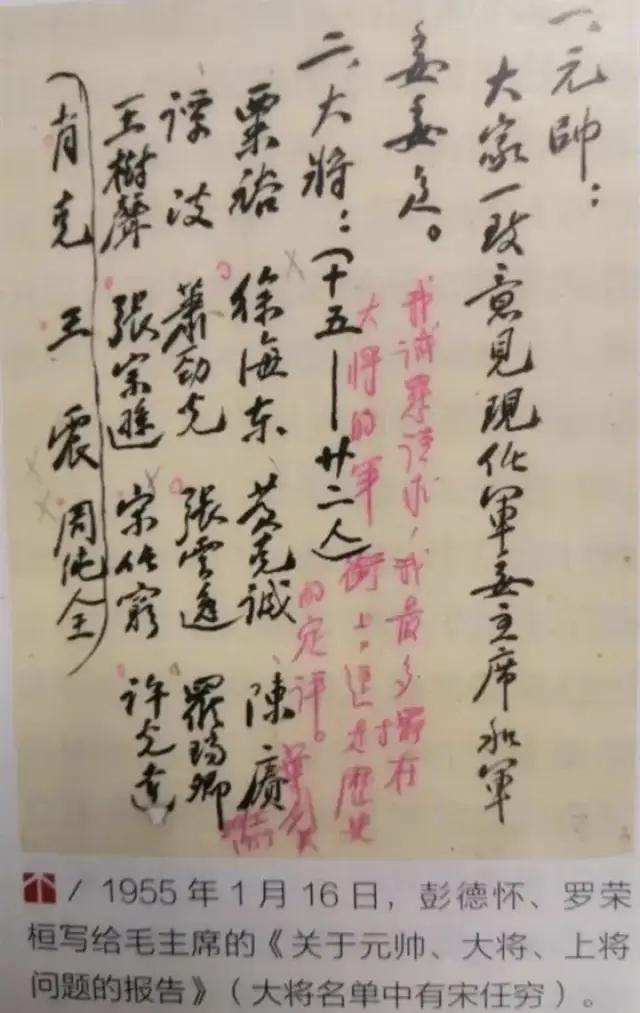 一、元帥：
大家一致意見現任軍委主席和軍
委委员。
二、大将：（十五——廿二人）
粟裕 徐海东 黄克诚 陳賡
谭政 蕭劲光 張雲逸 羅瑞卿
王樹聲 張宗遜 宋任窮 许光达
（肖克 王震 周纯全）
我诚恳请求，我最多摆在
大将的軍銜上，這是歷史
的定评。
/ 1955年1月16日，彭德怀、罗荣
桓写给毛主席的《关于元帅、大将、上将
问题的报告》（大将名单中有宋任穷）。